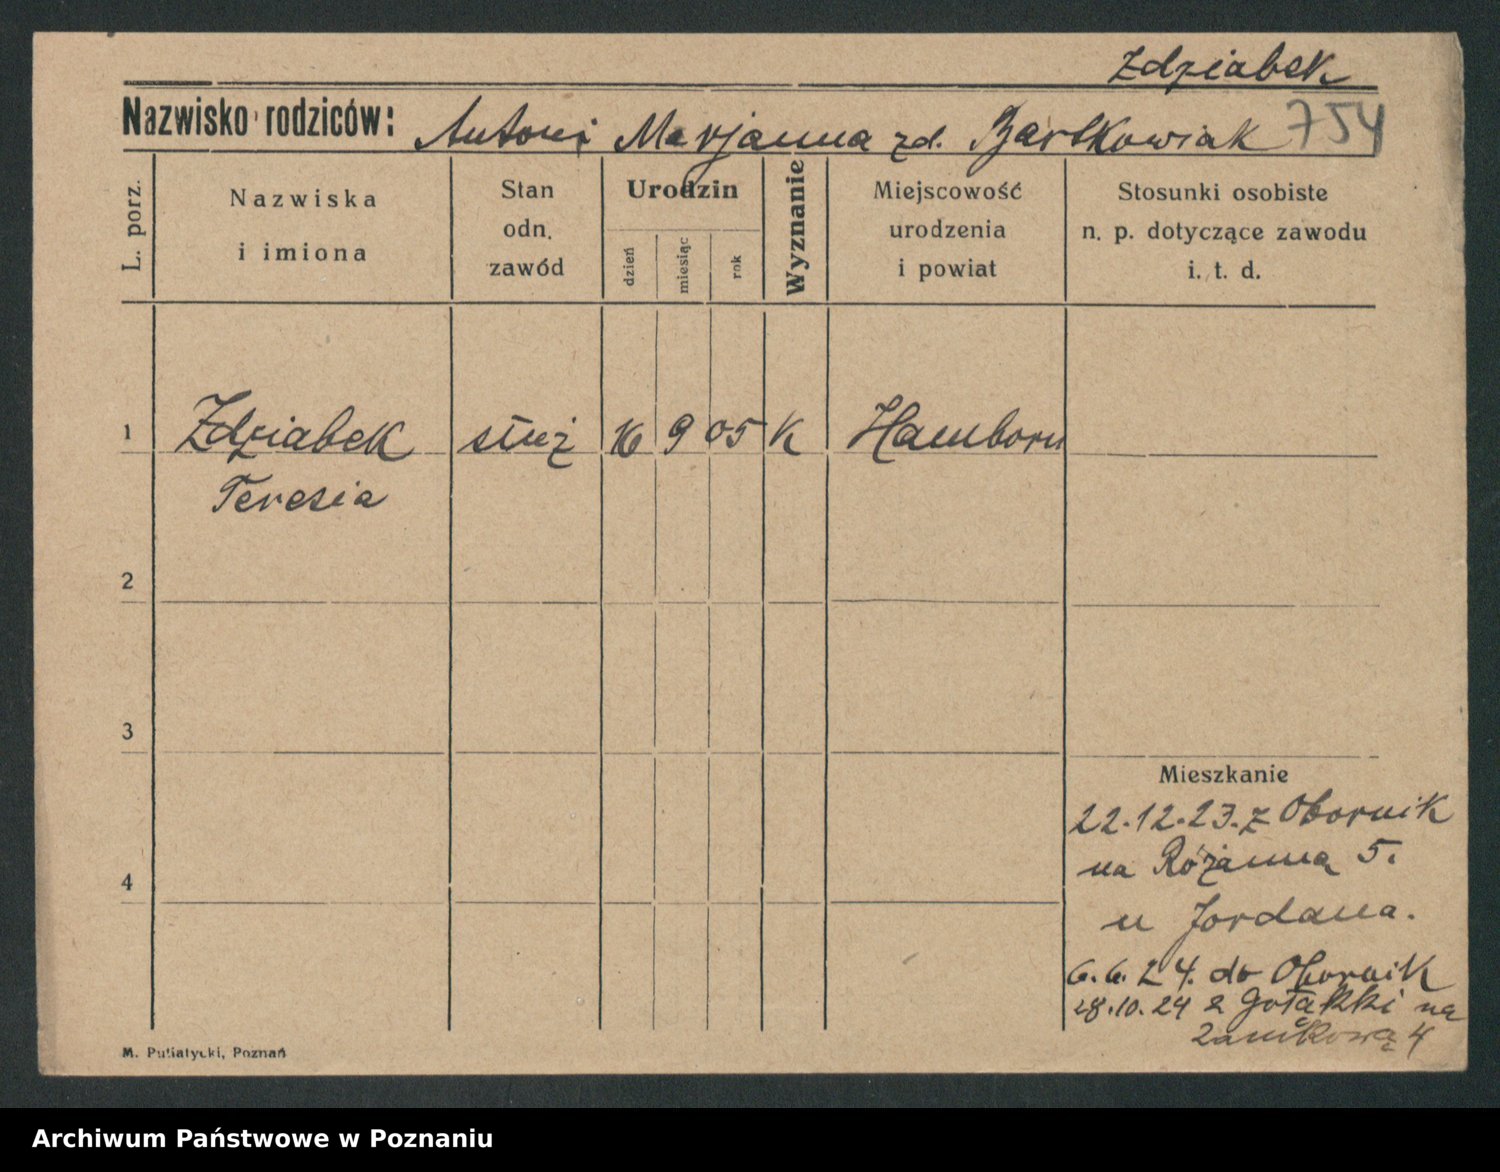 Zdziabek
Nazwisko rodziców: Antoni Marjanna zd. Bartkowiak 754
L. porz.
Nazwiska
i imiona
Stan
odn.
zawód
Urodzin
dzień
miesiąc
rok
Wyznanie
Miejscowość
urodzenia
i powiat
Stosunki osobiste
n. p. dotyczące zawodu
i. t. d.
1 Zdziabek służ 16 9 05 K Hamborn
Teresia
2
3
Mieszkanie
22.12.23. z Obornik
na Różanną 5.
4
u Jordana.
6.6.24. do Obornik
28.10.24 z na
Zamkową 4
M. Putiatycki, Poznań
Archiwum Państwowe w Poznaniu